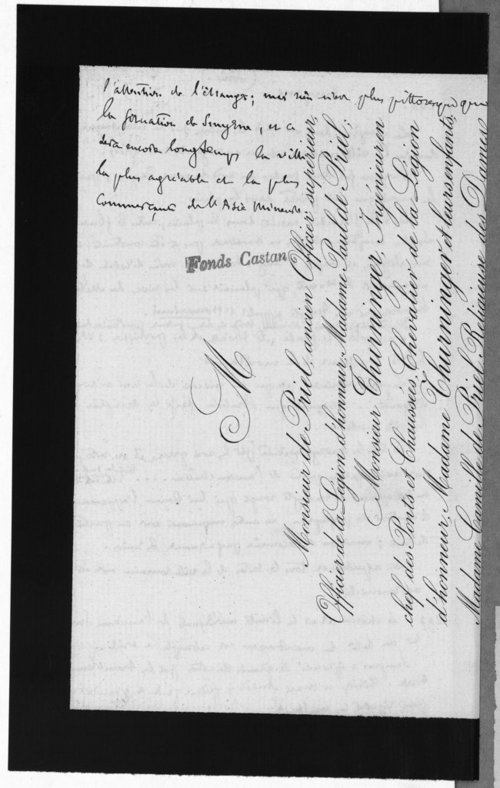 l'attention de l'étranger; mais rien n'est plus pittoresque que
la formation de Smyrne, et ce
sera encore longtemps la ville
la plus agréable et la plus
commerçante de l'Asie Mineure.
Fonds Castan
M
Monsieur de Priel, ancien Officier supérieur,
Officier de la Légion d'honneur, Madame Paul de Priel;
Monsieur Thurninger, Ingénieur en
chef des Ponts et Chaussées, Chevalier de la Légion
d'honneur, Madame Thurninger et leurs enfants;
Madame Camille de Priel, Religieuse des Dames